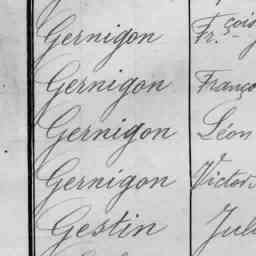 Gernigon Fr.çois
Gernigon Franço
Gernigon Léon
Gernigon Victor
Gestin Jul